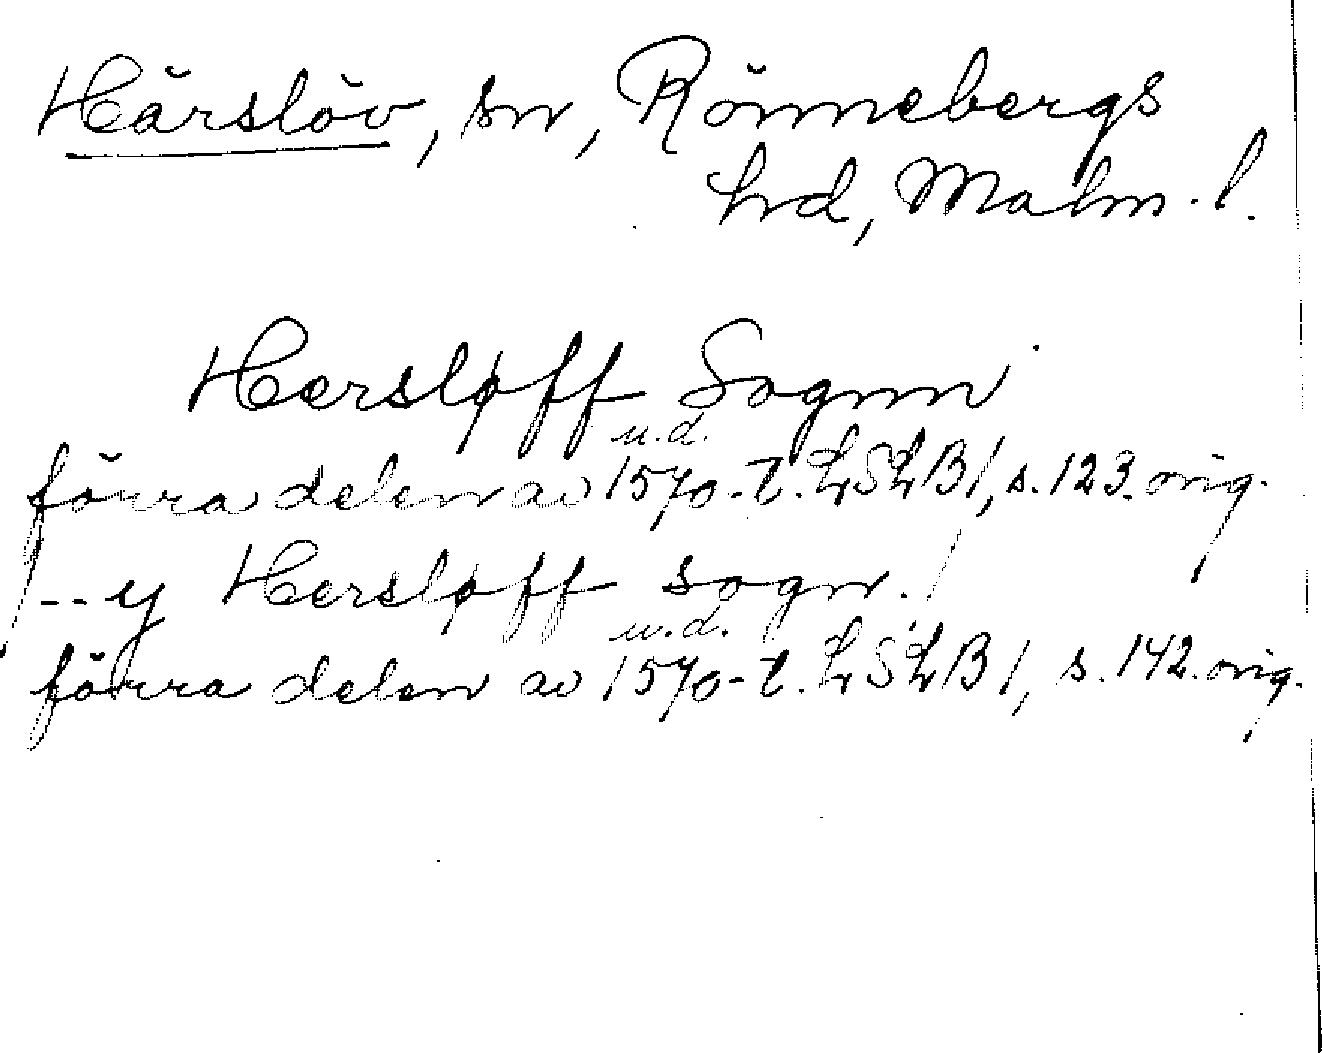 Härslöv, sn, Rönnebergs
hd, Malm. l.
Hersløff Sognn
u.d.
förra delen av 1570-t. LSLB 1, s. 123. orig.
-- y Hersløff sogn. /
u.d.
förra delen av 1570-t. LSLB 1, s. 142. orig.